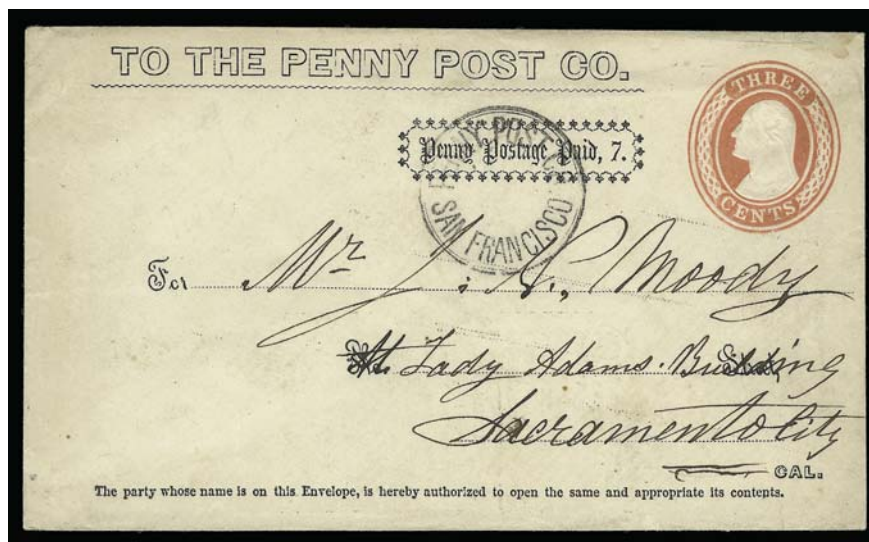 TO THE PENNY POST CO.
THREE
CENTS
Penny Postage Paid, 7.
PENNY POST CO.
SAN FRANCISCO
For Mr J. Moody
Lady Adams Building
Sacramento City
CAL.
The party whose name is on this Envelope, is hereby authorized to open the same and appropriate its contents.